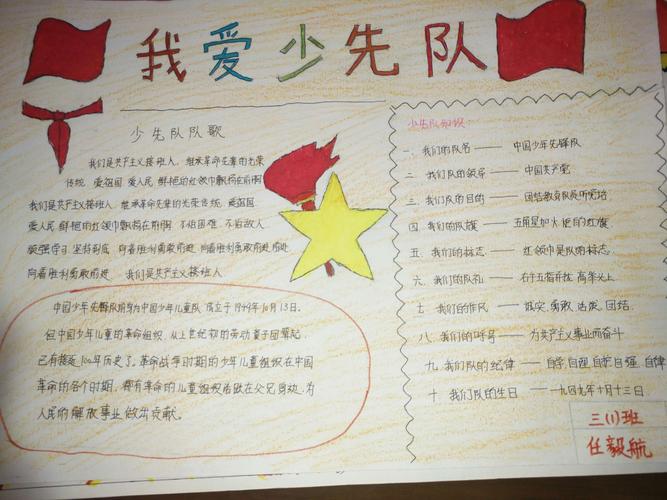 我爱少先队
少先队队歌
我们是共产主义接班人，继承革命先辈的光荣
传统 爱祖国 爱人民 鲜艳的红领巾飘扬在前胸
我们是共产主义接班人，继承革命先辈的光荣传统 爱祖国
爱人民 鲜艳的红领巾飘扬在前胸 不怕困难 不怕敌人
顽强学习 坚持到底 向着胜利勇敢前进 向着胜利勇敢前进
向着胜利勇敢前进 我们是共产主义接班人
中国少年先锋队前身为中国少年儿童队 成立于1949年10月13日。
但中国少年儿童的革命组织，从上世纪初的劳动童子团算起，
已有接近100年历史了。革命战争时期的少年儿童组织在中国
革命的各个时期，都有革命的儿童组织跟在父兄身边，为
人民的解放事业做出贡献。
少先队知识：
一、我们的队名——中国少年先锋队
二、我们队的领导——中国共产党
三、我们队的目的——团结教育队员听党话
四、我们的队旗——五角星加火炬的红旗
五、我们的标志——红领巾是队的标志
六、我们的队礼——右手五指并拢 高举头上
七、我们的作风——诚实、勇敢、活泼、团结
八、我们的呼号——为共产主义事业而奋斗
九、我们队的纪律——自学 自理 自护 自强 自律
十、我们队的生日——一九四九年十月十三日
三(1)班
任毅航